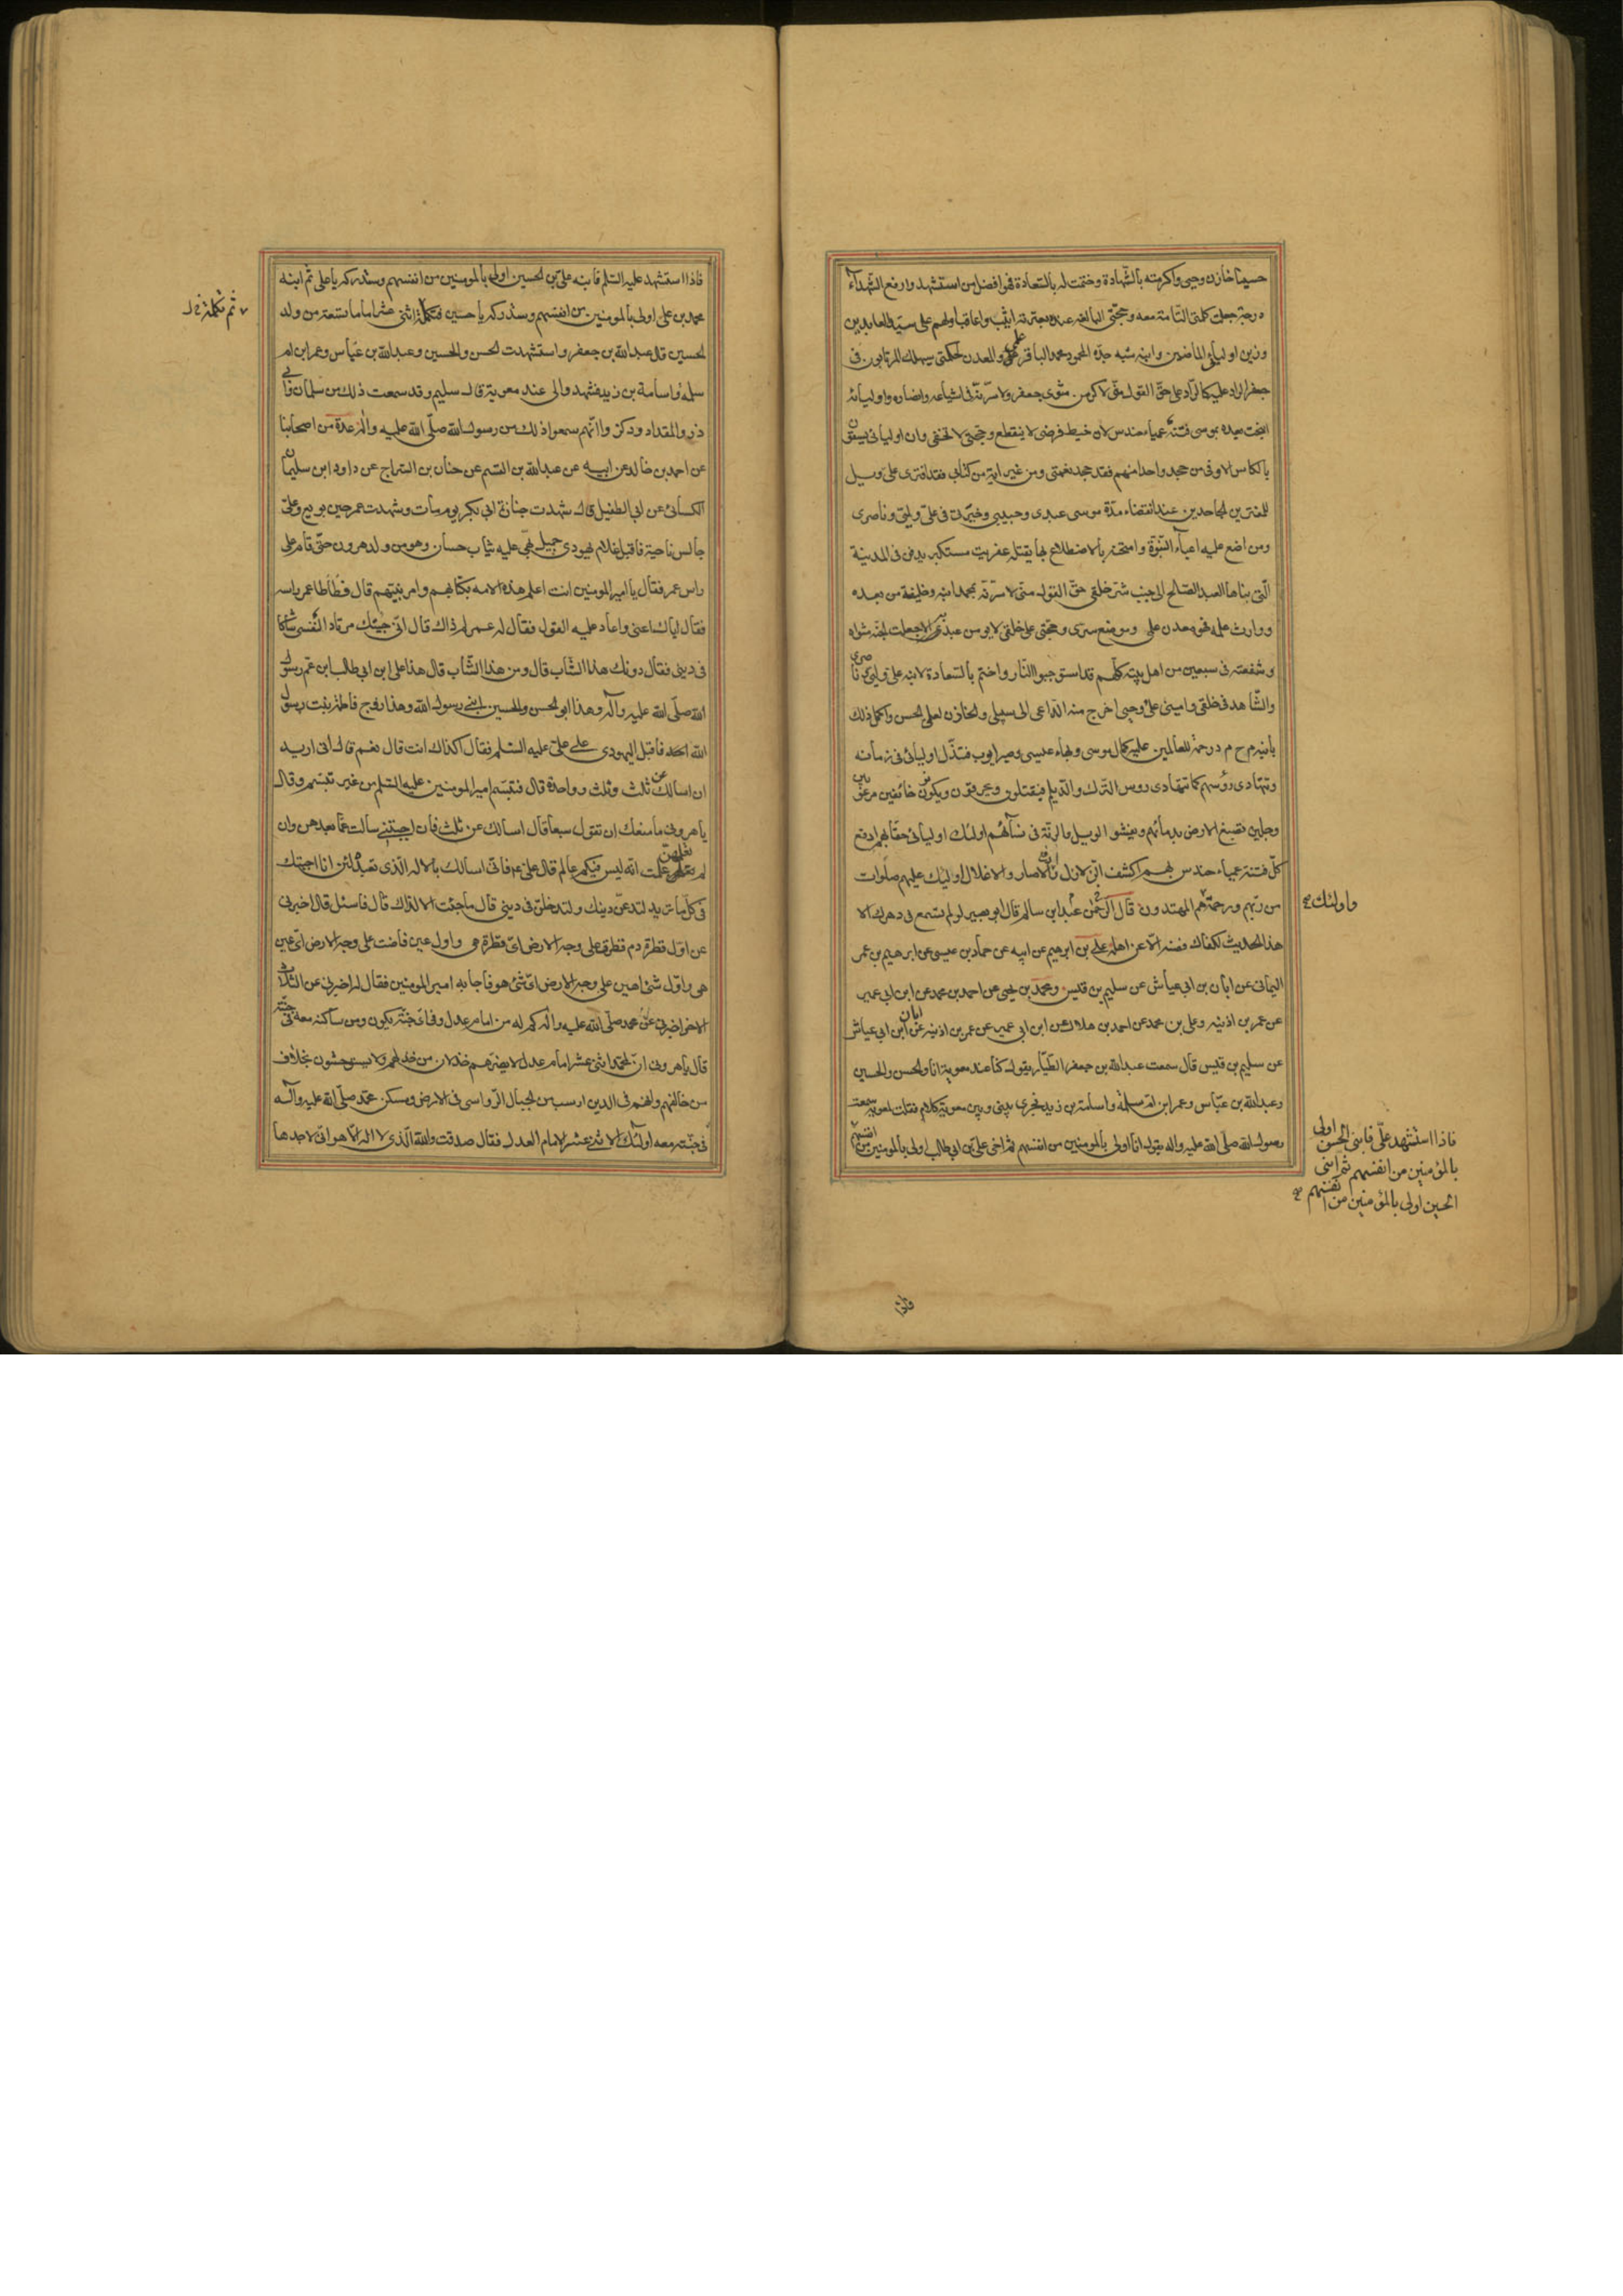 حسينا خازن وحيي واكرمته بالشهادة وختمت له بالسعادة فهو افضل من استشهد وارفع الشهدآء
درجة جعلت كلمتي التامة معه وحجتي البالغة عنده بعترته اثيب واعاقب اولهم علي سيد العابدين
وزين اوليائي الماضين وابنه شبه جده المحمود محمد الباقر علمي والمعدن لحكمتي سيهلك المرتابون في
جعفر الراد عليه كالراد علي حق القول مني لاكرمن مثوى جعفر ولاسرنه في اشياعه وانصاره واوليائه
اتيحت بعده بموسى فتنة عمياء حندس لان خيط فرضي لا ينقطع وحجتي لا تخفى وان اوليائي يسقون
بالكاس الاوفى من جحد واحدا منهم فقد جحد نعمتي ومن غير اية من كتابي فقد افترى علي ويل
للمفترين الجاحدين عند انقضاء مدة موسى عبدي وحبيبي وخيرتي في علي وليي وناصري
ومن اضع عليه اعبآء النبوة وامتحنه بالاضطلاع بها يقتله عفريت مستكبر يدفن في المدينة
التي بناها العبد الصالح الى جنب شر خلقي حق القول مني لاسرنه بمحمد ابنه وخليفته من بعده
ووارث علمه فهو معدن علمي وموضع سري وحجتي على خلقي لا يومن عبد به الا جعلت الجنة مثواه
وشفعته في سبعين من اهل بيته كلهم قد استوجبوا النار واختم بالسعادة لابنه علي وليي وناصري
والشاهد في خلقي واميني على وحيي اخرج منه الداعي الى سبيلي والخازن لعلمي الحسن واكمل ذلك
بابنه م ح م د رحمة للعالمين عليه كمال موسى وبهاء عيسى وصبر ايوب فتذل اوليائي في زمانه
وتتهادى رؤسهم كما تتهادى روس الترك والديلم فيقتلون ويحرقون ويكونون خائفين مرعوبين
وجلين تصبغ الارض بدمائهم ويفشو الويل والرنة في نسآئهم اولئك اوليائي حقا بهم ادفع
كل فتنة عمياء حندس بهم اكشف الزلازل وادفع الاصار والاغلال اولئك عليهم صلوات
من ربهم ورحمة هم المهتدون قال عبد الرحمن ابن سالم قال ابو بصير لو لم تسمع في دهرك الا
واولئك
هذا الحديث لكفاك فصنه الا عن اهله علي بن ابرهيم عن ابيه عن حماد بن عيسى عن ابرهيم بن عمر
اليماني عن ابان بن ابي عياش عن سليم بن قيس ومحمد بن يحيى عن احمد بن محمد عن ابن ابي عمير
عن عمر بن اذينه وعلي بن محمد عن احمد بن هلال عن ابن ابي عمير عن عمر بن اذينه عن ابان ابن ابي عياش
عن سليم بن قيس قال سمعت عبدالله بن جعفر الطيار يقول كنا عند معوية انا والحسن والحسين
وعبدالله بن عباس وعمر ابن ام سلمة واسامة بن زيد فجرى بيني وبين معوية كلام فقلت لمعوية سمعت
رسول الله صلى الله عليه واله يقول انا اولى بالمومنين من انفسهم ثم اخي علي بن ابي طالب اولى بالمومنين من انفسهم
فاذا استشهد علي فابني الحسن اولى
بالمؤمنين من انفسهم ثم ابني
الحسين اولى بالمؤمنين من انفسهم
فاذا استشهد عليه السلم فابنه علي بن الحسين اولى بالمومنين من انفسهم وستدركه يا علي ثم ابنه
محمد بن علي اولى بالمومنين من انفسهم وستدركه يا حسين فتكملة اثني عشر اماما تسعة من ولد
ثم تكملة خ ل
الحسين قال عبدالله بن جعفر واستشهدت الحسن والحسين وعبدالله بن عباس وعمر ابن ام
سلمة واسامة بن زيد فشهدوا لي عند معوية قال سليم وقد سمعت ذلك من سلمان وابي
ذر والمقداد وذكروا انهم سمعوا ذلك من رسول الله صلى الله عليه واله عدة من اصحابنا
عن احمد بن خالد عن ابيه عن عبدالله بن القسم عن حنان بن السراج عن داود ابن سليمان
الكسائي عن ابي الطفيل قال شهدت جنازة ابي بكر يوم مات وشهدت عمر حين بويع وعلي
جالس ناحية فاقبل غلام يهودي جميل بهي عليه ثياب حسان وهو من ولد هرون حتى قام على
راس عمر فقال يا امير المومنين انت اعلم هذه الامة بكتابهم وامر نبيهم قال فطاطا عمر راسه
فقال اياك اعني واعاد عليه القول فقال له عمر لم ذاك قال اني جئتك مرتادا لنفسي شاكا
في ديني فقال دونك هذا الشاب قال ومن هذا الشاب قال هذا علي ابن ابي طالب ابن عم رسول
الله صلى الله عليه وآله وهذا ابو الحسن والحسين ابني رسول الله وهذا زوج فاطمة بنت رسول
الله فاقبل اليهودي على علي عليه السلم فقال اكذاك انت قال نعم قال اني اريد
ان اسالك عن ثلث وثلث وواحدة قال فتبسم امير المومنين عليه السلم من غير تبسم وقال
يا هروني ما منعك ان تقول سبعا قال اسالك عن ثلث فان اجبتني سالت عما بعدهن وان
لم تعلمهن علمت انه ليس فيكم عالم قال علي ع فاني اسالك بالاله الذي تعبده لئن انا اجبتك
في كل ما تريد لتدعن دينك ولتدخلن في ديني قال ما جئت الا لذاك قال فاسئل قال اخبرني
عن اول قطرة دم قطرت على وجه الارض اي قطرة هي واول عين فاضت على وجه الارض اي عين
هي واول شئ اهتز على وجه الارض اي شئ هو فاجابه امير المومنين فقال له اخبرني عن الثلاث
الاخر اخبرني عن محمد صلى الله عليه واله كم له من امام عدل وفي اي جنة يكون ومن ساكنه معه في جنته
قال يا هروني ان لمحمد اثني عشر امام عدل لا يضرهم خذلان من خذلهم ولا يستوحشون بخلاف
من خالفهم وانهم في الدين ارسب من الجبال الرواسي في الارض ومسكن محمد صلى الله عليه وآله
في جنته معه اولئك الاثنى عشر الامام العدل فقال صدقت والله الذي لا اله الا هو اني لاجدها